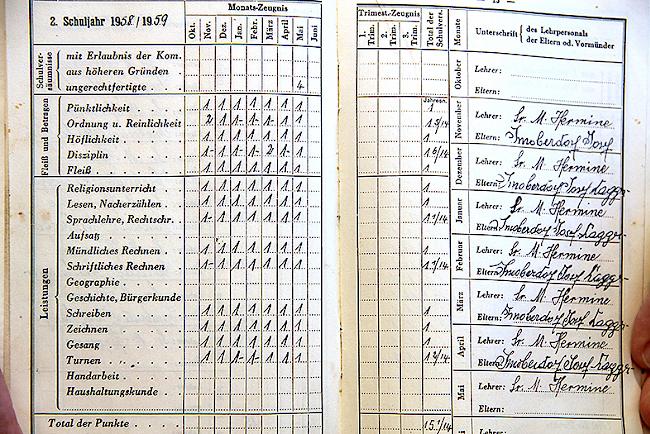 2. Schuljahr 1958/1959
Monats-Zeugnis
Okt. Nov. Dez. Jan. Febr. März April Mai Juni
Schulver-
säumnisse
mit Erlaubnis der Kom.
aus höheren Gründen
ungerechtfertigte . . 4
Fleiß und Betragen
Pünktlichkeit . . . . 1 1 1 1 1 1 1
Ordnung u. Reinlichkeit 2 1 1- 1- 1 1 1
Höflichkeit . . . . 1 1 1 1 1 1 1
Disziplin . . . . 1- 1- 1- 1- 2 1- 1
Fleiß . . . . 1 1 1 1 1 1 1
Leistungen
Religionsunterricht . . 1 1 1 1 1 1 1
Lesen, Nacherzählen . 1 1 1 1 1 1 1
Sprachlehre, Rechtschr. 1- 1 1 1 1 1 1
Aufsatz . . . .
Mündliches Rechnen . . 1 1 1 1 1 1 1
Schriftliches Rechnen . 1- 1 1 1 1 1 1
Geographie . . . .
Geschichte, Bürgerkunde
Schreiben . . . . 1 1 1 1 1 1 1
Zeichnen . . . . 1 1 1 1 1 1 1
Gesang . . . . 1 1 1 1 1 1 1
Turnen . . . . 1 1 1- 1- 1 1 1
Handarbeit . . . .
Haushaltungskunde . . .
Total der Punkte . . .
Trimest.-Zeugnis
1. Trim. 2. Trim. 3. Trim.
Total der Schulvers.
Jahresn.
1
1
1
1
1
1
1
1
1
Monate
Unterschrift des Lehrpersonals
der Eltern od. Vormünder
Oktober
Lehrer:
Eltern:
November
Lehrer: Sr. M. Hermine
Eltern: Imoberdorf Josf
Dezember
Lehrer: Sr. M. Hermine
Eltern: Imoberdorf Josf
Januar
Lehrer: Sr. M. Hermine
Eltern: Imoberdorf Josf
Februar
Lehrer: Sr. M. Hermine
Eltern: Imoberdorf Josf
März
Lehrer: Sr. M. Hermine
Eltern: Imoberdorf Josf
April
Lehrer: Sr. M. Hermine
Eltern: Imoberdorf Josf
Mai
Lehrer: Sr. M. Hermine
Eltern: